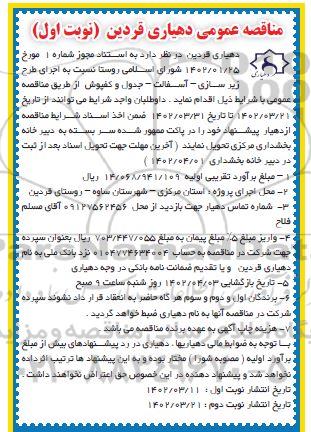 مناقصه عمومی دهیاری قردین (نوبت اول)
دهیاری قردین در نظر دارد به استناد مجوز شماره ۱ مورخ
۱۴۰۲/۰۱/۲۵ شورای اسلامی روستا نسبت به اجرای طرح
زیر سازی – آسفالت – جدول و کفپوش از طریق مناقصه
عمومی با شرایط ذیل اقدام نماید . داوطلبان واجد شرایط می توانند از تاریخ
۱۴۰۲/۰۳/۲۱ تا تاریخ ۱۴۰۲/۰۳/۳۱ ضمن اخذ اسناد شرایط مناقصه
ازدهیار پیشنهاد خود را در پاکت ممهور شده سر بسته به دبیر خانه
بخشداری مرکزی تحویل نمایند ( آخرین مهلت جهت تحویل اسناد بعد از ثبت
در دبیر خانه بخشداری ۱۴۰۲/۰۴/۰۱ )
۱– مبلغ برآورد تقریبی اولیه ۱۴/۰۶۸/۹۴۱/۱۰۹ ریال
۲– محل اجرای پروژه : استان مرکزی – شهرستان ساوه – روستای قردین
۳– شماره تماس دهیار جهت بازدید از محل ۰۹۱۲۷۵۶۲۴۵۶ آقای مسلم
فلاح
۴– واریز مبلغ ۵٪ مبلغ پیمان به مبلغ ۷۰۳/۴۴۷/۰۵۵ ریال بعنوان سپرده
جهت شرکت در مناقصه به حساب ۰۱۰۴۷۷۴۶۳۴۰۰۴ نزد بانک ملی به نام
دهیاری قردین و یا تقدیم ضمانت نامه بانکی در وجه دهیاری
۵– تاریخ بازگشایی ۱۴۰۲/۰۴/۰۳ روز شنبه ساعت ۹ صبح
۶– برندگان اول و دوم و سوم هر گاه حاضر به انعقاد قرار داد نشوند سپرده
شرکت در مناقصه آنها به نام دهیاری ضبط خواهد گردید .
۷– هزینه چاپ آگهی به عهده برنده مناقصه می باشد .
با توجه به ضوابط مالی دهیاریها . دهیاری در رد پیشنهادهای بیش از مبلغ
برآورد اولیه ( مصوبه شورا ) مختار بوده و به این پیشنهاد ها ترتیب اثر داده
نخواهد شد و پیشنهاد دهنده در این خصوص حق اعتراضی نخواهند داشت .
تاریخ انتشار نوبت اول : ۱۴۰۲/۰۳/۱۱
تاریخ انتشار نوبت دوم : ۱۴۰۲/۰۳/۲۱